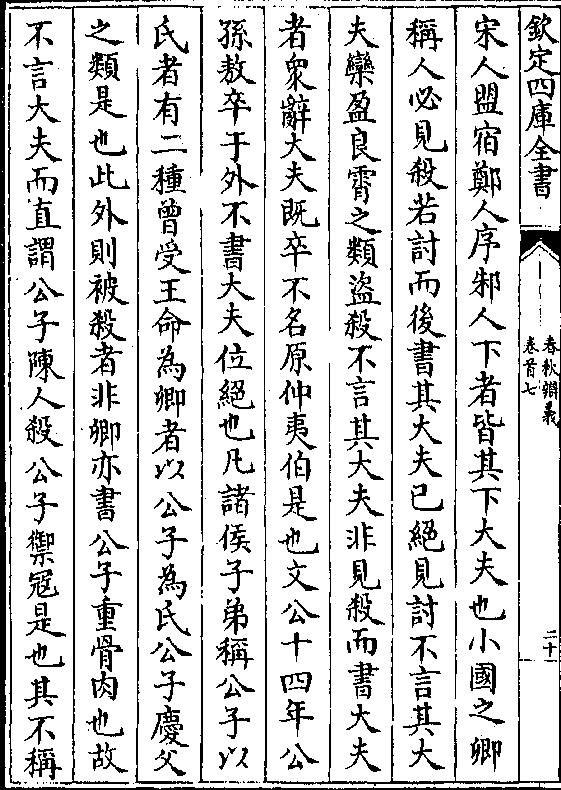 欽定四庫全書
春秋辯義
卷首七
二十一
宋人盟宿鄭人序邾人下者皆其下大夫也小國之卿
稱人必見殺若討而後書其大夫已絕見討不言其大
夫欒盈良霄之類盜殺不言其大夫非見殺而書大夫
者衆辭大夫既卒不名原仲夷伯是也文公十四年公
孫敖卒于外不書大夫位絕也凡諸侯子弟稱公子以
氏者有二種曾受王命為卿者以公子為氏公子慶父
之類是也此外則被殺者非卿亦書公子重骨肉也故
不言大夫而直謂公子陳人殺公子禦寇是也其不稱